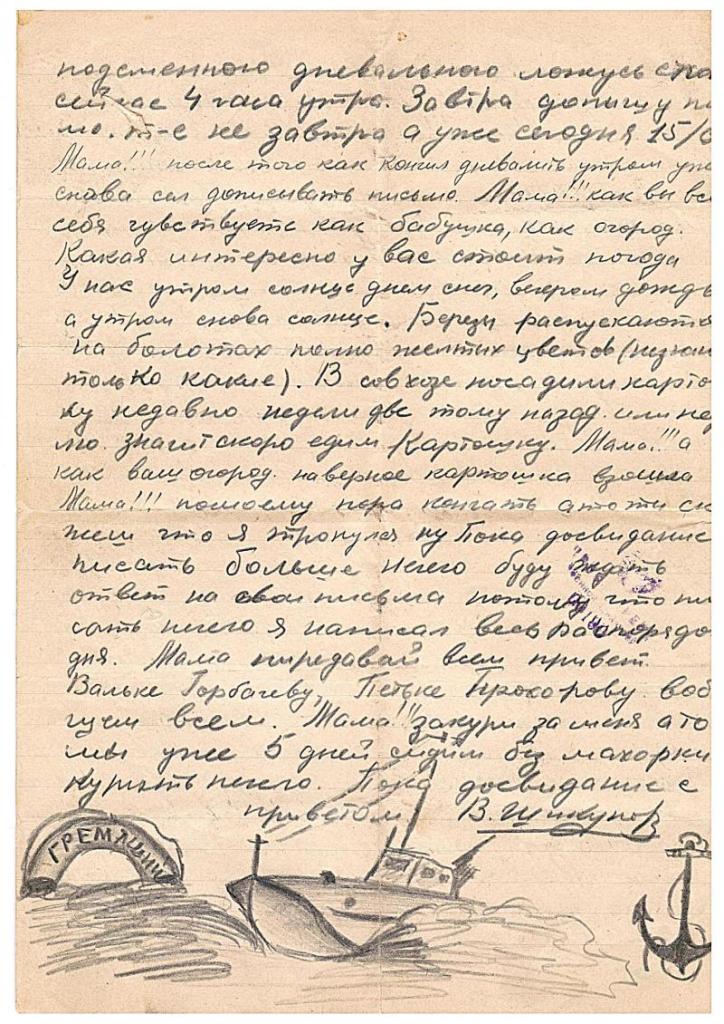 подсменного дневального ложусь спа
сейчас 4 часа утра. Завтра допишу п
мо. т-е не завтра а уже сегодня 15/
Мама!!! после того как кончил дневалить утром
снова сел дописывать письмо. Мама!!! как вы все
себя чувствуете как бабушка, как огород.
Какая интересно у вас стоит погода
У нас утром солнце днем снег, вечером дождь
а утром снова солнце. Березы распускаются
на болотах полно желтых цветов (незнаю
только какие). В совхозе посадили карто
ку недавно недели две тому назад. или не
мю. значит скоро едим Картошку. Мама!!! а
как ваш огород. наверное картошка взошла
Мама!!! помоему пора кончать а то ти ск
жеш что я тронулся ну Пока досвидание
писать больше нечего буду ждать
ответ на свои письма потому что пи
сать нечего я написал весь распорядо
дня. Мама пиредавай всем привет
Вальке Горбачеву, Петьке Прохорову вооб
щем всем. Мама!!! закури за меня а то
мы уже 5 дней сидим без махорки
курить нечего. Пока досвидание с
приветом. В. Шикунов
ГРЕМЯЩИЙ